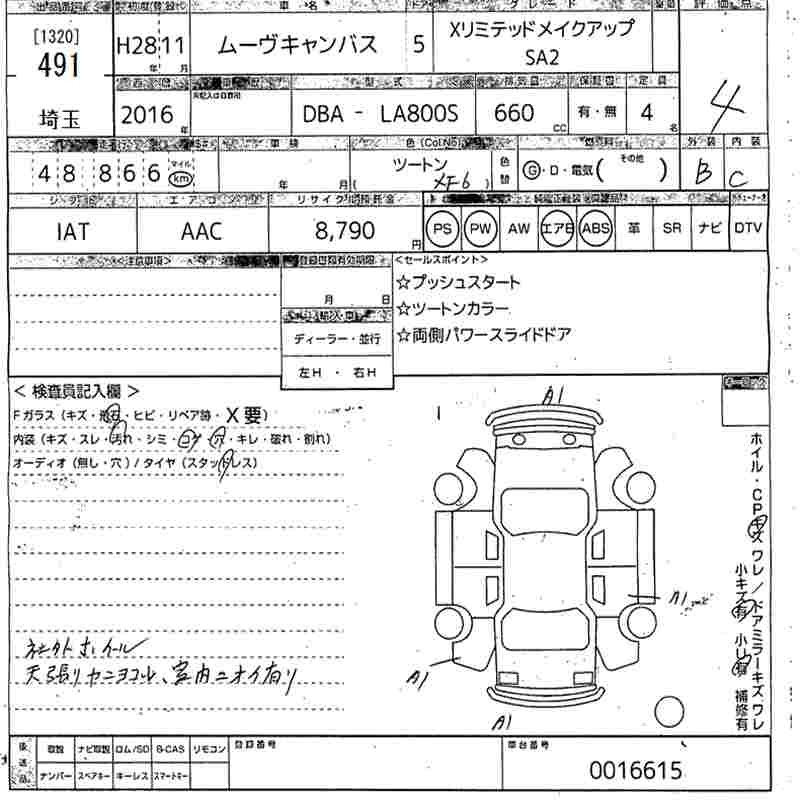 [1320]
491
埼玉
H28 11
年 月
ムーヴキャンバス
5
Xリミテッドメイクアップ
SA2
4
2016
年
DBA - LA800S
660
CC
有・無
4
名
48 866
マイル
km
車検
年 月
色 (Col.No)
ツートン
XF6
色替
G・D・電気( その他 )
外装
B
内装
C
エアコン
IAT
AAC
8,790
円
PS PW AW エアB ABS 革 SR ナビ DTV
月 日
ディーラー・並行
左H ・ 右H
<セールスポイント>
☆プッシュスタート
☆ツートンカラー
☆両側パワースライドドア
< 検査員記入欄 >
Fガラス (キズ・飛石・ヒビ・リペア跡・X要)
内装 (キズ・スレ・汚れ・シミ・コゲ・穴・キレ・破れ・割れ)
オーディオ (無し・穴) / タイヤ (スタッドレス)
A1
A1
A1
A1
ホイル・CPキズ ワレ / ドアミラーキズ ワレ
小キズ有 小凹有 補修有
社外ホイール
天張りヤニヨゴレ、室内ニオイ有り
後送品
取説 ナビ取説 ロム/SD B-CAS リモコン
ナンバー スペアキー キーレス スマートキー
登録番号
車台番号
0016615